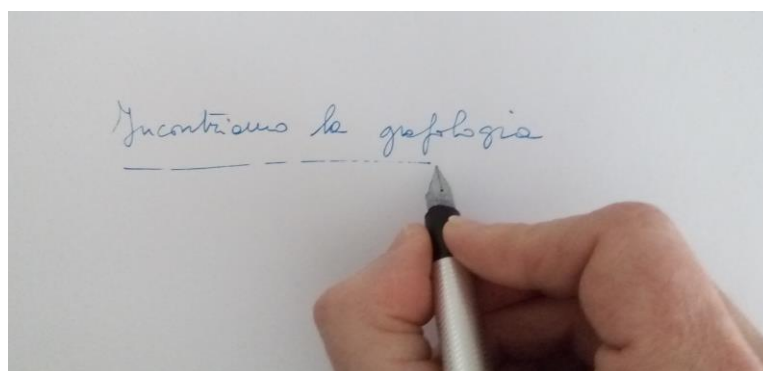 Incontriamo la grafologia